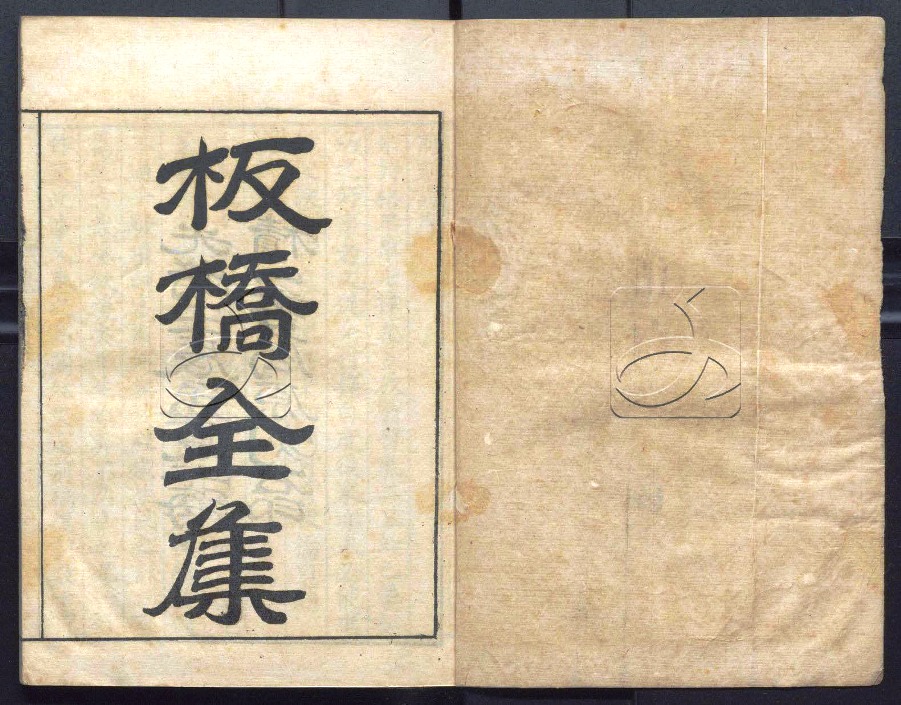 板橋全集